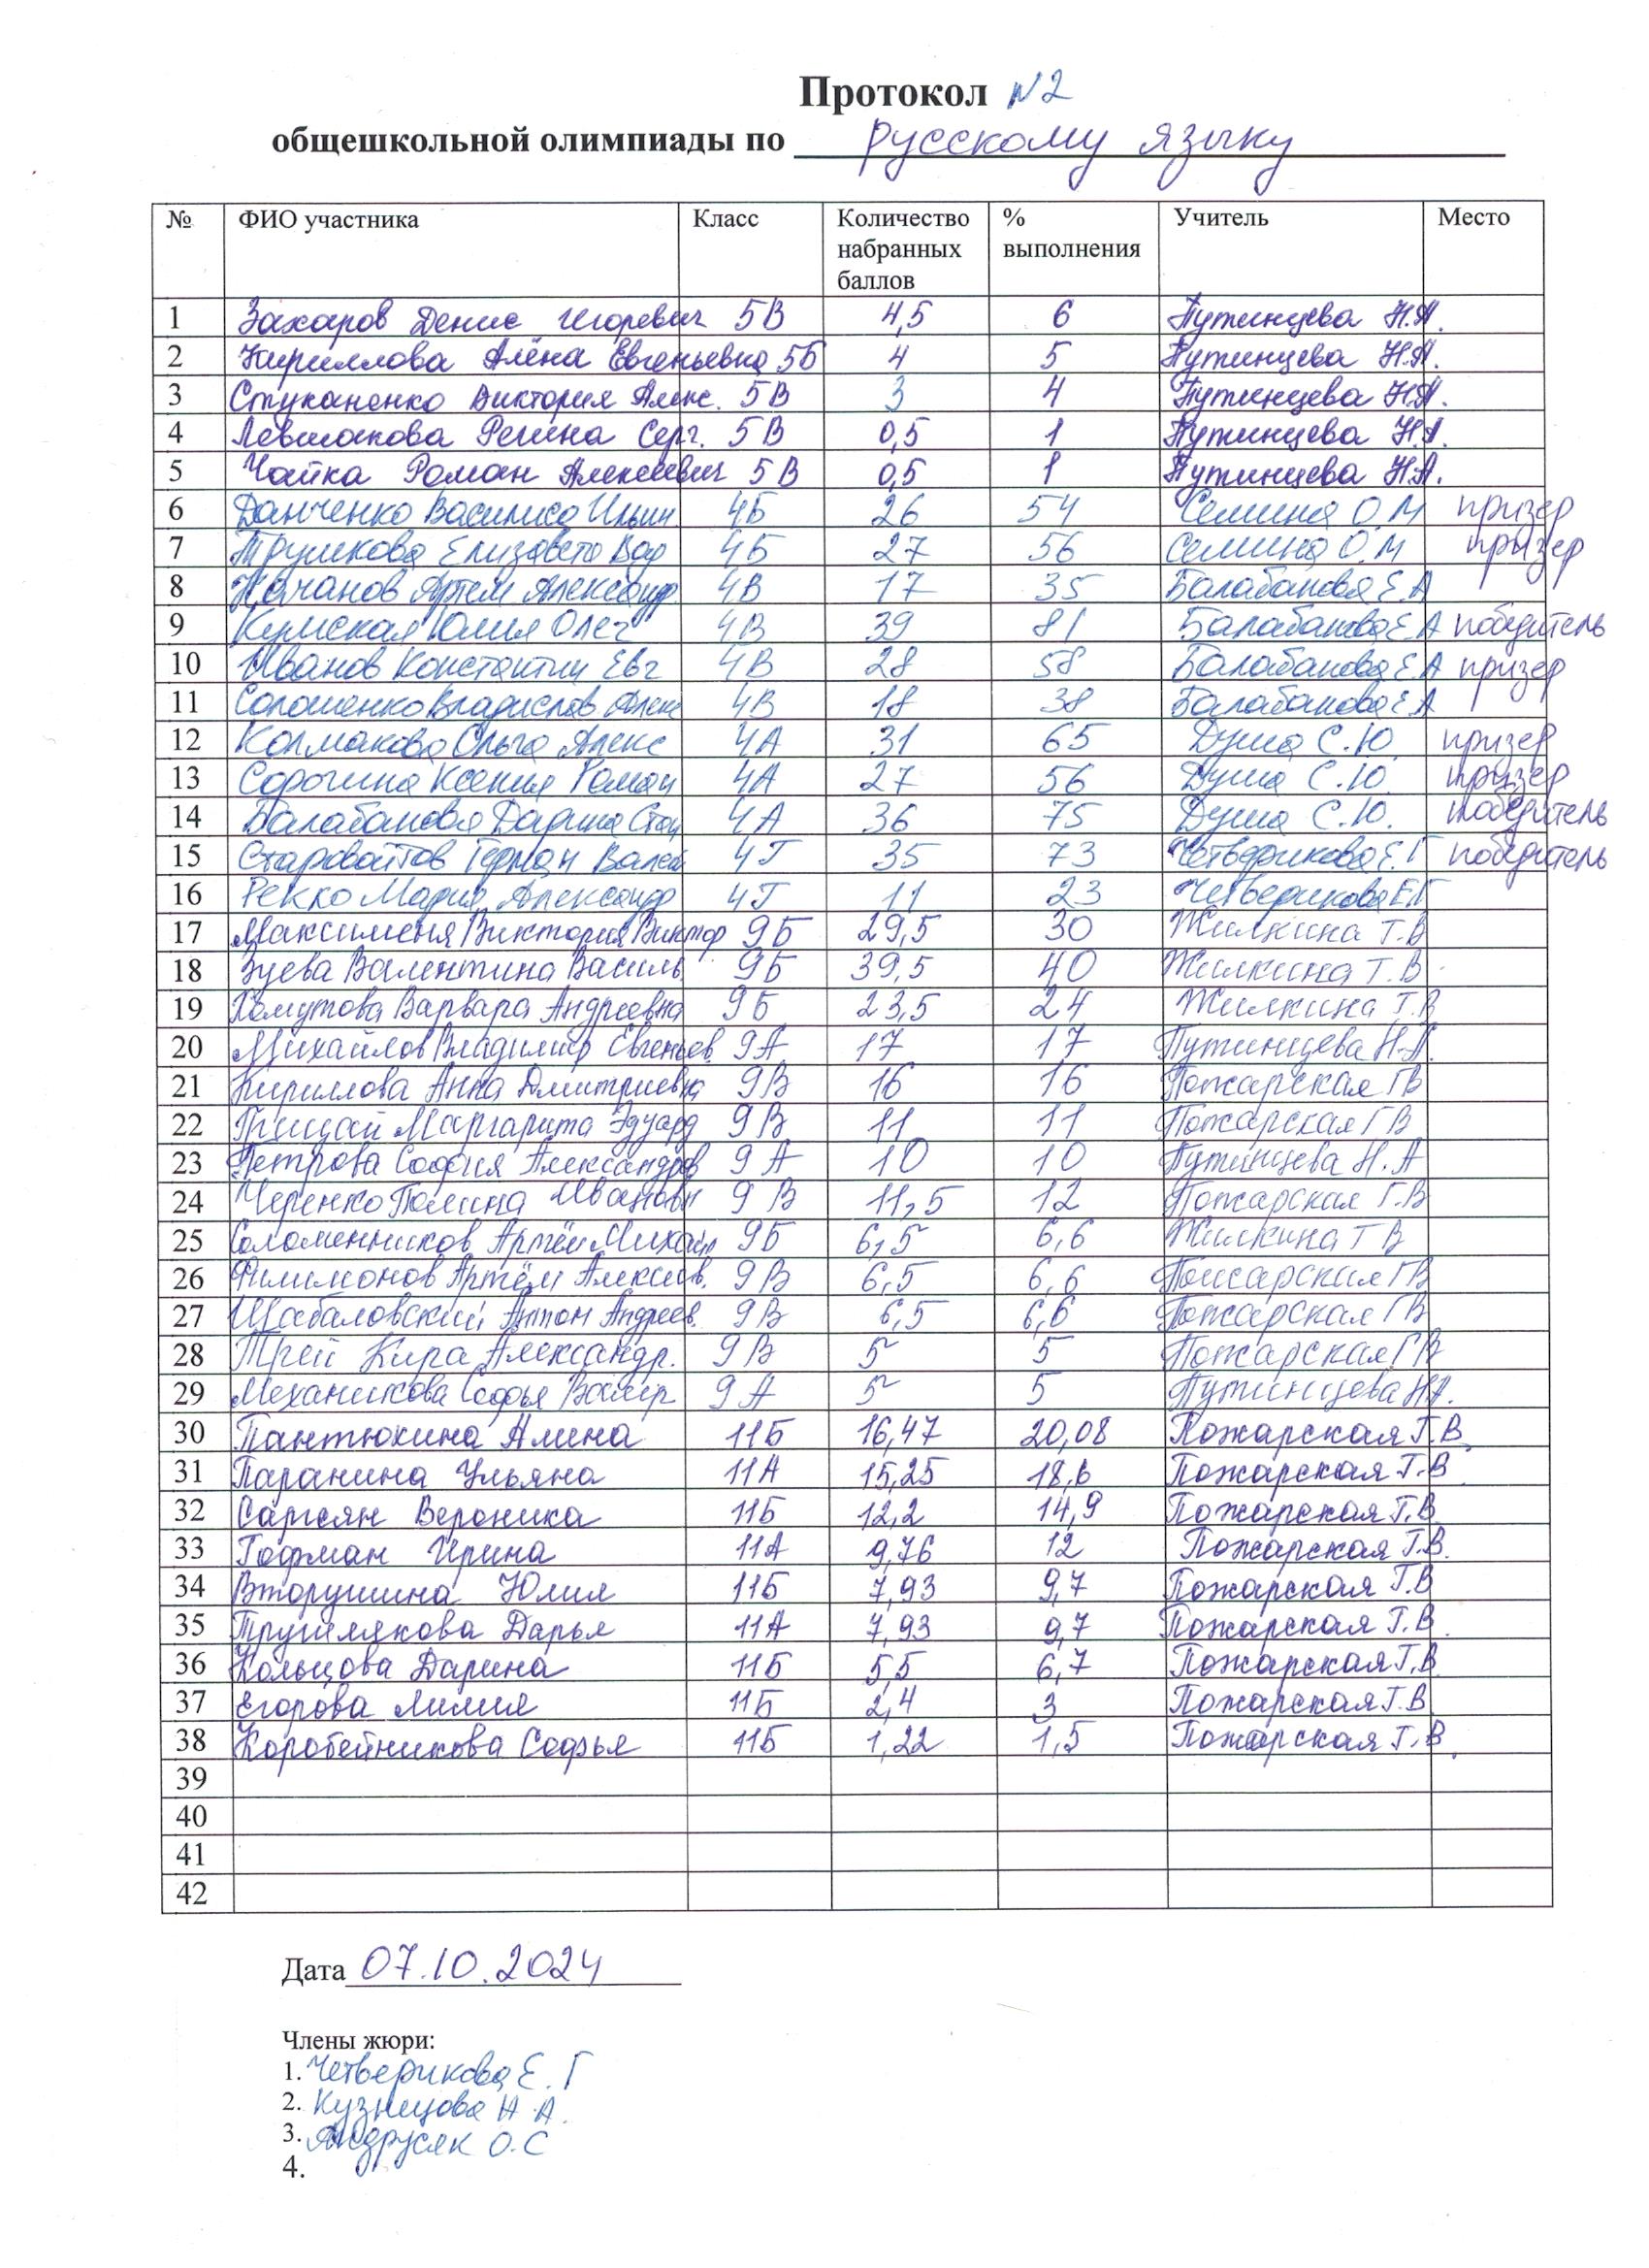 Протокол №2
общешкольной олимпиады по русскому языку
№ ФИО участника Класс Количество набранных баллов % выполнения Учитель Место
1 Захаров Денис Игоревич 5В 4,5 6 Путинцева Н.А.
2 Кириллова Алёна Евгеньевна 5Б 4 5 Путинцева Н.А.
3 Стуканенко Виктория Алекс. 5В 3 4 Путинцева Н.А.
4 Левшакова Регина Серг. 5В 0,5 1 Путинцева Н.А.
5 Чайка Роман Алексеевич 5В 0,5 1 Путинцева Н.А.
6 Данченко Василиса Ильин 4Б 26 54 Семина О.М призер
7 Трушкова Елизавета Вад 4Б 27 56 Семина О.М призер
8 Качанов Артем Александр 4В 17 35 Балабанова Е.А
9 Кумская Юлия Олег 4В 39 81 Балабанова Е.А победитель
10 Иванов Константин Евг 4В 28 58 Балабанова Е.А призер
11 Солошенко Владислав Алекс 4В 18 38 Балабанова Е.А
12 Колмакова Ольга Алекс 4А 31 65 Душа С.Ю призер
13 Сорочина Ксения Роман 4А 27 56 Душа С.Ю. призер
14 Балабанова Дарина Стан 4А 36 75 Душа С.Ю. победитель
15 Старовойтов Герман Валек 4Г 35 73 Четверикова Е.Г победитель
16 Рекко Мария Александр 4Г 11 23 Четверикова Е.Г
17 Максименя Виктория Виктор 9Б 29,5 30 Жилкина Т.В
18 Зуева Валентина Василь 9Б 39,5 40 Жилкина Т.В.
19 Хомутова Варвара Андреевна 9Б 23,5 24 Жилкина Т.В
20 Михайлов Владимир Евгеньев. 9А 17 17 Путинцева Н.А.
21 Кириллова Анна Дмитриевна 9В 16 16 Пожарская Г В
22 Грицай Маргарита Эдуард 9В 11 11 Пожарская Г В
23 Петрова София Александров 9А 10 10 Путинцева Н.А
24 Черенко Полина Ивановн 9В 11,5 12 Пожарская Г.В
25 Соломенников Артём Михайл 9Б 6,5 6,6 Жилкина Т В
26 Филимонов Артём Алексеев. 9В 6,5 6,6 Пожарская Г В
27 Шабаловский Антон Андреев. 9В 6,5 6,6 Пожарская Г В
28 Трей Кира Александр. 9В 5 5 Пожарская Г В
29 Механикова Софья Валер 9А 5 5 Путинцева Н.А.
30 Пантюхина Алина 11Б 16,47 20,08 Пожарская Г.В.
31 Паранина Ульяна 11А 15,25 18,6 Пожарская Г.В.
32 Саргсян Вероника 11Б 12,2 14,9 Пожарская Г.В.
33 Гофман Ирина 11А 9,76 12 Пожарская Г.В.
34 Вторушина Юлия 11Б 7,93 9,7 Пожарская Г.В
35 Трушлякова Дарья 11А 7,93 9,7 Пожарская Г.В.
36 Кольцова Дарина 11Б 5,5 6,7 Пожарская Г.В
37 Егорова Лилия 11Б 2,4 3 Пожарская Г.В.
38 Коробейникова Софья 11Б 1,22 1,5 Пожарская Г.В.
39
40
41
42
Дата 07.10.2024
Члены жюри:
1. Четверикова Е.Г
2. Кузнецова Н.А.
3. Андрусяк О.С
4.